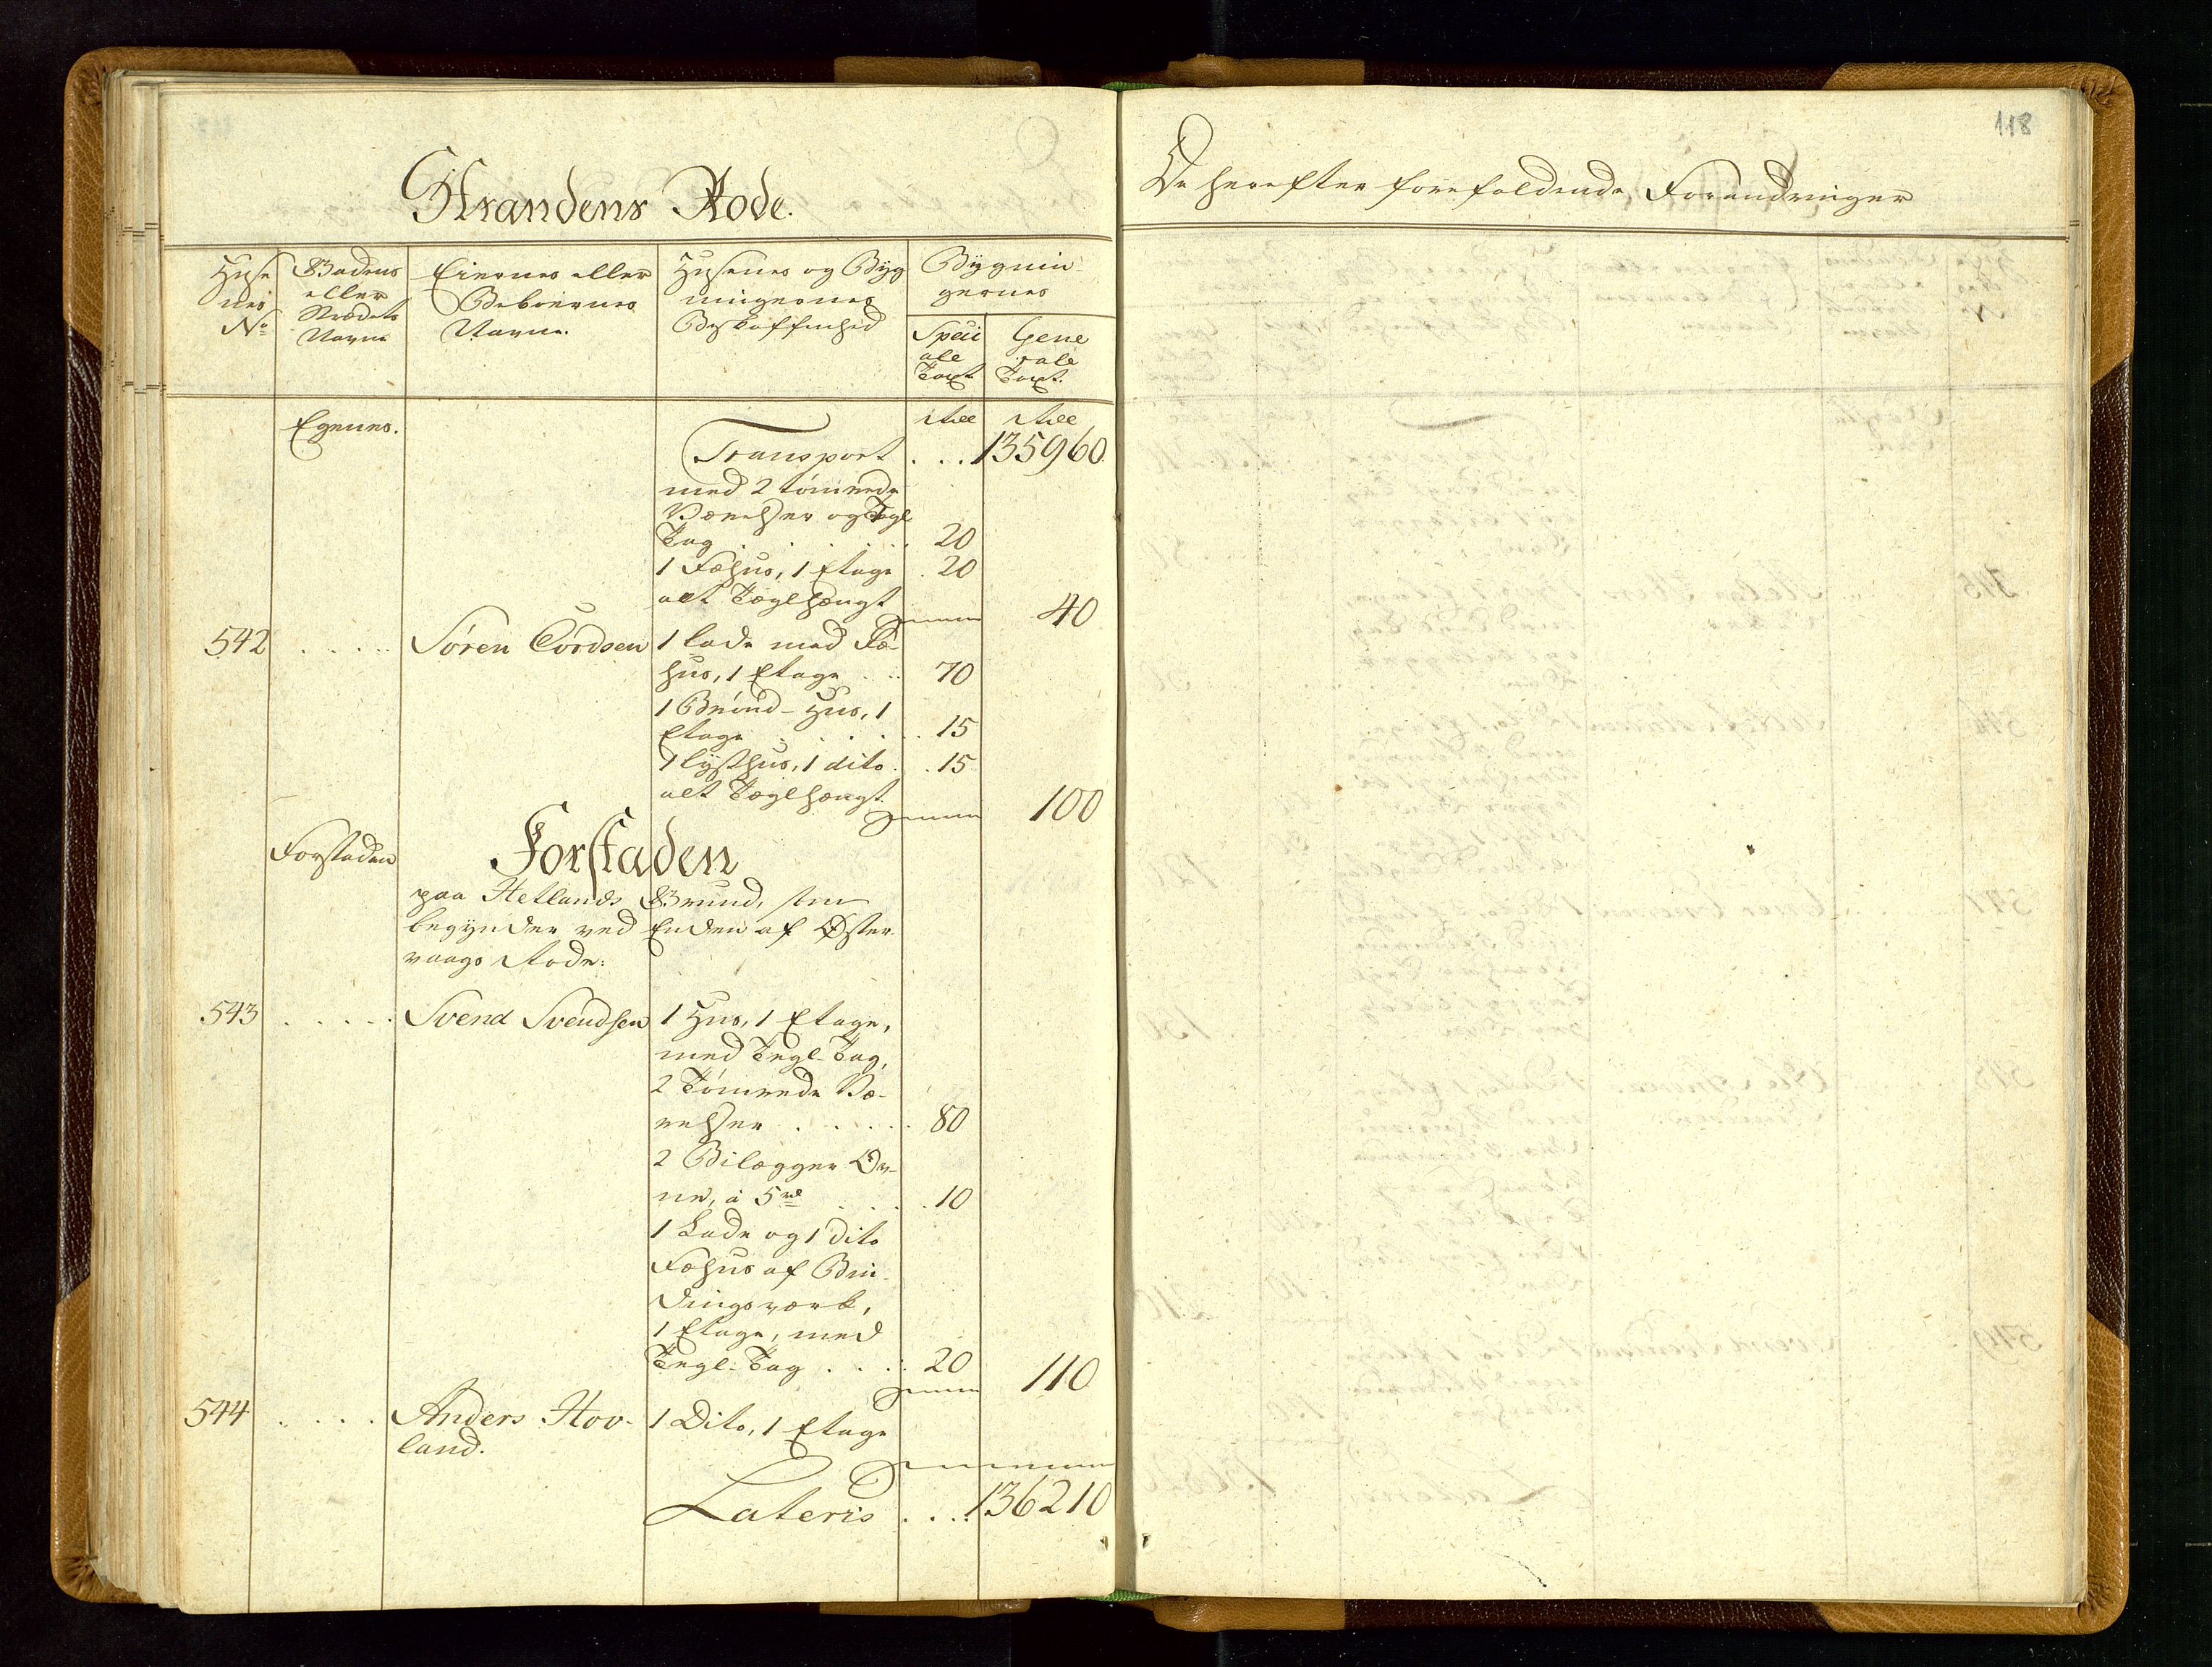 Strandens Rode.
Huse
nes
No
Gadens
eller
Strædets
Navne
Eiernes eller
Beboernes
Navne.
Husenes og Byg
ningernes
Beskaffenhed
Bygnin-
gernes
Speci
ale
Taxt.
Gene
rale
Taxt.
Egenes.
Rdl Rdl
Transport . . . 135960
med 2 tømrede
Værelser og Tegl
Tag . . . . . 20
1 Fæhus, 1 Etage . 20
alt Tæglhængt
40
542 . . . . . Søren Tordsen 1 lade med Fæ-
hus, 1 Etage . . . 70
1 Brønd-Hus, 1
Etage . . . . . 15
1 lysthus, 1 dito . . 15
alt Tæglhængt
100
Forstaden Forstaden
paa Hetlands Grund, som
begynder ved Enden af Øster-
vaags Rode:
543 . . . . . Svend Svendsen 1 Hus, 1 Etage,
med Tegl-Tag,
2 Tømrede Væ-
relser . . . . . 80
2 Bilægger Ov-
ne, à 5 rd . . . . 10
1 Lade og 1 dito
Fæhus af Bin-
dingsværk,
1 Etage, med
Tegl-Tag . . . . 20
110
544 . . . . Anders Hov- 1 Dito, 1 Etage
land.
Lateris . . . . 136210
118
De herefter forefaldende Forandringer